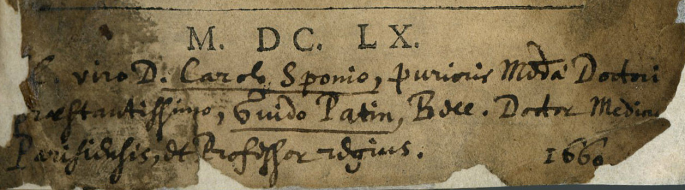 M. DC. LX.
C. viro D. Carolo Sponio, purioris Medicinæ Doctori
præstantissimo, Guido Patin, Bell. Doctor Medicus
Parisiensis, et Professor regius. 1660